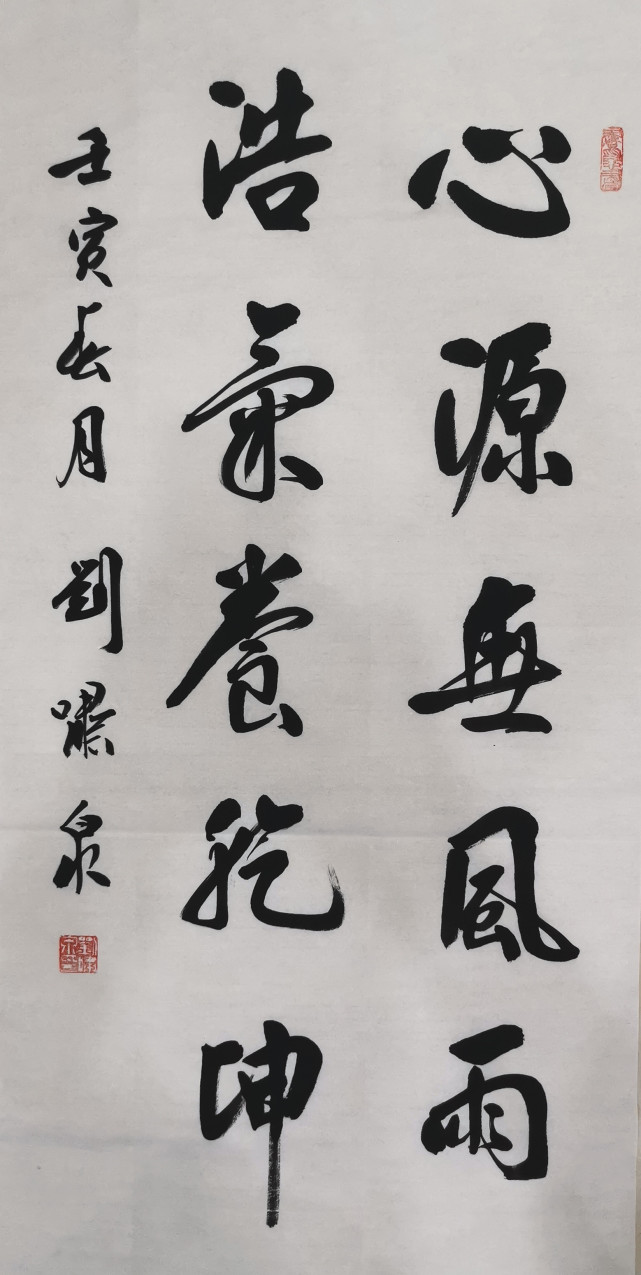 心源無風雨
浩氣養乾坤
壬寅春月 劉嘯泉